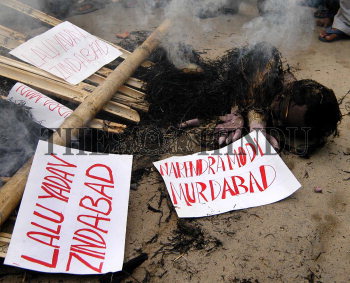 LALU YADAV
ZINDABAD
THE HINDU
LALU YADAV
ZINDABAD
NARENDRA MODI
MURDABAD